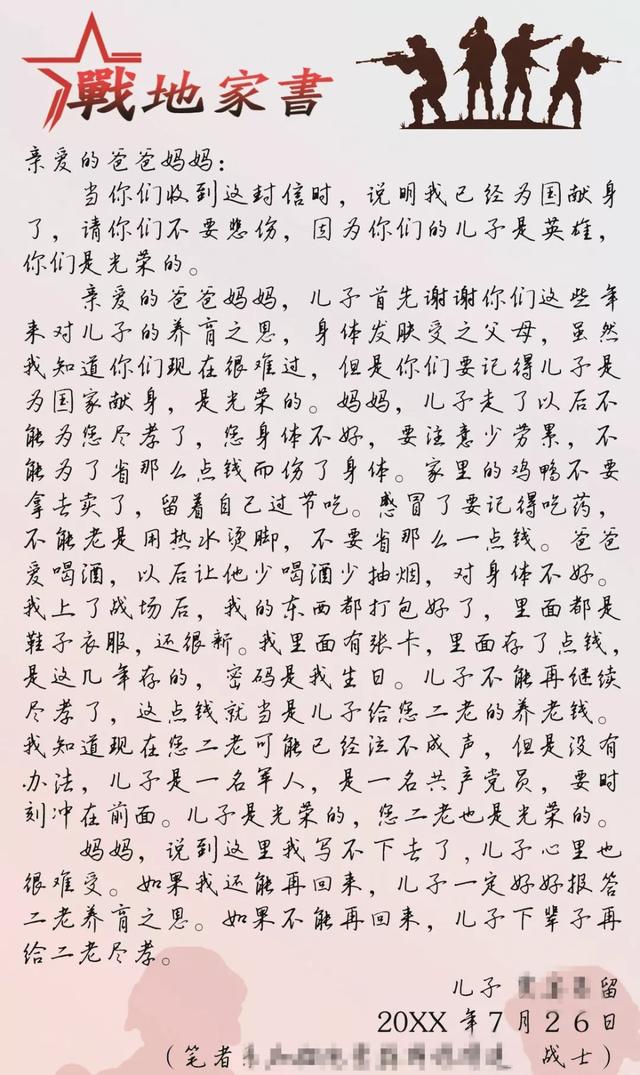 戰地家書
亲爱的爸爸妈妈：
当你们收到这封信时，说明我已经为国献身
了，请你们不要悲伤，因为你们的儿子是英雄，
你们是光荣的。
亲爱的爸爸妈妈，儿子首先谢谢你们这些年
来对儿子的养育之恩，身体发肤受之父母，虽然
我知道你们现在很难过，但是你们要记得儿子是
为国家献身，是光荣的。妈妈，儿子走了以后不
能为您尽孝了，您身体不好，要注意少劳累，不
能为了省那么点钱而伤了身体。家里的鸡鸭不要
拿去卖了，留着自己过节吃。感冒了要记得吃药，
不能老是用热水烫脚，不要省那么一点钱。爸爸
爱喝酒，以后让他少喝酒少抽烟，对身体不好。
我上了战场后，我的东西都打包好了，里面都是
鞋子衣服，还很新。我里面有张卡，里面存了点钱，
是这几年存的，密码是我生日。儿子不能再继续
尽孝了，这点钱就当是儿子给您二老的养老钱。
我知道现在您二老可能已经泣不成声，但是没有
办法，儿子是一名军人，是一名共产党员，要时
刻冲在前面。儿子是光荣的，您二老也是光荣的。
妈妈，说到这里我写不下去了，儿子心里也
很难受。如果我还能再回来，儿子一定好好报答
二老养育之恩。如果不能再回来，儿子下辈子再
给二老尽孝。
儿子 留
20XX 年 7 月 2 6 日
（笔者 战士）